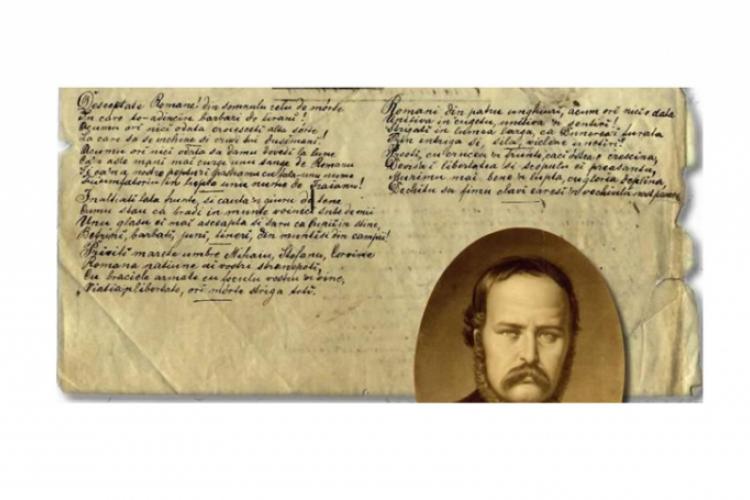 Desceptate Romane! din somnulu celu de mórte
In care te-adincire barbarii de tirani!
Acumu ori nici odata croiesceti alta sórte
La care sa se inchine si crudii tui dusimani!
Acumu ori nici odata sa damu dovedi la lume
Ca'n aste mani mai curge unu sange de Romanu
Si ca'n a nostre pepturi pastramu cu fala-unu nume
Triumfatoriu in lupte unu nume de Traianu!
Inaltiati lata frunte si cauta'n giuru de tene
Cumu stau ca bradi in munte voinici sute de mii
Unu glasu ei mai asceapta si saru ca lupii in stine,
Betrani, barbati, juni, tineri, din munti si din campii!
Priviti marete umbre Mihaiu, Stefanu, Corvine
Romana natiune ai vostri stranepoti,
Cu braciele armate cu foculu vostru'n vine,
Viatia'n libertate, ori mórte striga toti.
Romani din patru unghiuri, acum ori nici o data
Uniti-va in cugetu, uniti-va'n sentiri!
Strigati in lumea larga, ca Dunarea-i furata
Prin intriga si, sila, viclene uneltiri!
Preoti, cu crucea'n frunte, caci óstea e crescina,
Devisa-i libertatea si scopulu ei preasantu,
Murimu mai bene'n lupta, cu gloria deplina
Decâtu sa fimu sclavi éresi'n vechiulu nost